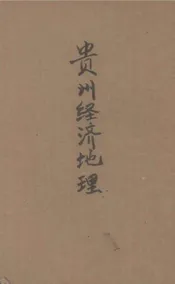 貴州经济地理